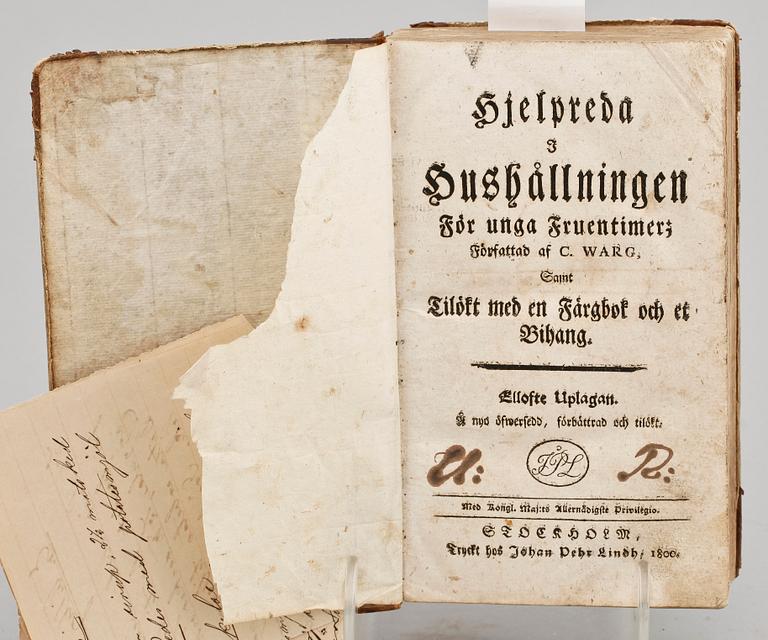 Hjelpreda
I
Hushållningen
För unga Fruentimer;
Författad af C. WARG,
Samt
Tilökt med en Färgbok och et
Bihang.
Ellofte Uplagan.
Å nyo öfwersedd, förbättrad och tilökt.
U: JPL R:
Med Kongl. Maj:ts Allernådigste Privilegio.
STOCKHOLM,
Tryckt hos Johan Pehr Lindh, 1800.
med potatismjöl